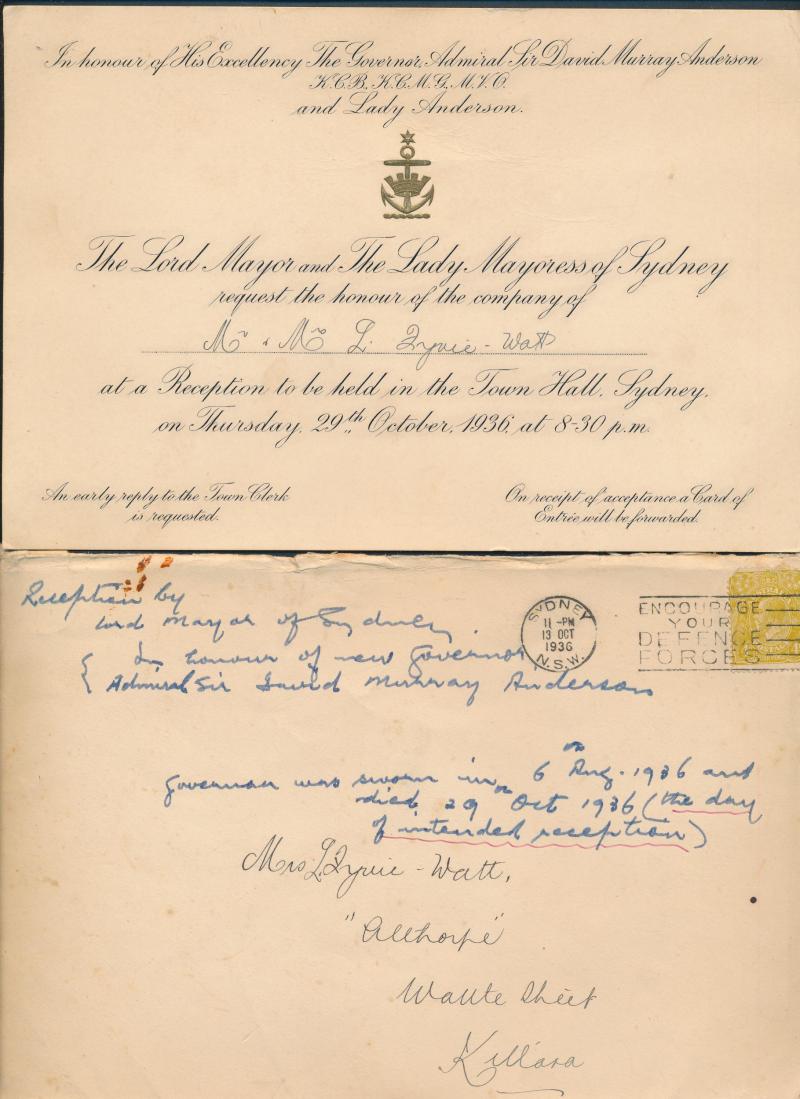 In honour of His Excellency The Governor, Admiral Sir David Murray Anderson
K.C.B., K.C.M.G., M.V.O.
and Lady Anderson.
The Lord Mayor and The Lady Mayoress of Sydney
request the honour of the company of
Mr & Mrs L. Fyvie-Watt
at a Reception to be held in the Town Hall, Sydney,
on Thursday, 29th October, 1936, at 8-30 p.m.
An early reply to the Town Clerk
is requested.
On receipt of acceptance a Card of
Entrée will be forwarded.
Reception by
Lord Mayor of Sydney
In honour of new Governor
Admiral Sir David Murray Anderson
SYDNEY
11-PM
13 OCT
1936
N.S.W.
ENCOURAGE
YOUR
DEFENCE
FORCES
Governor was sworn in on 6th Aug. 1936 and
died 29 Oct 1936 (the day
of intended reception)
Mrs L. Fyvie-Watt,
"Allthorpe"
Street
Killara